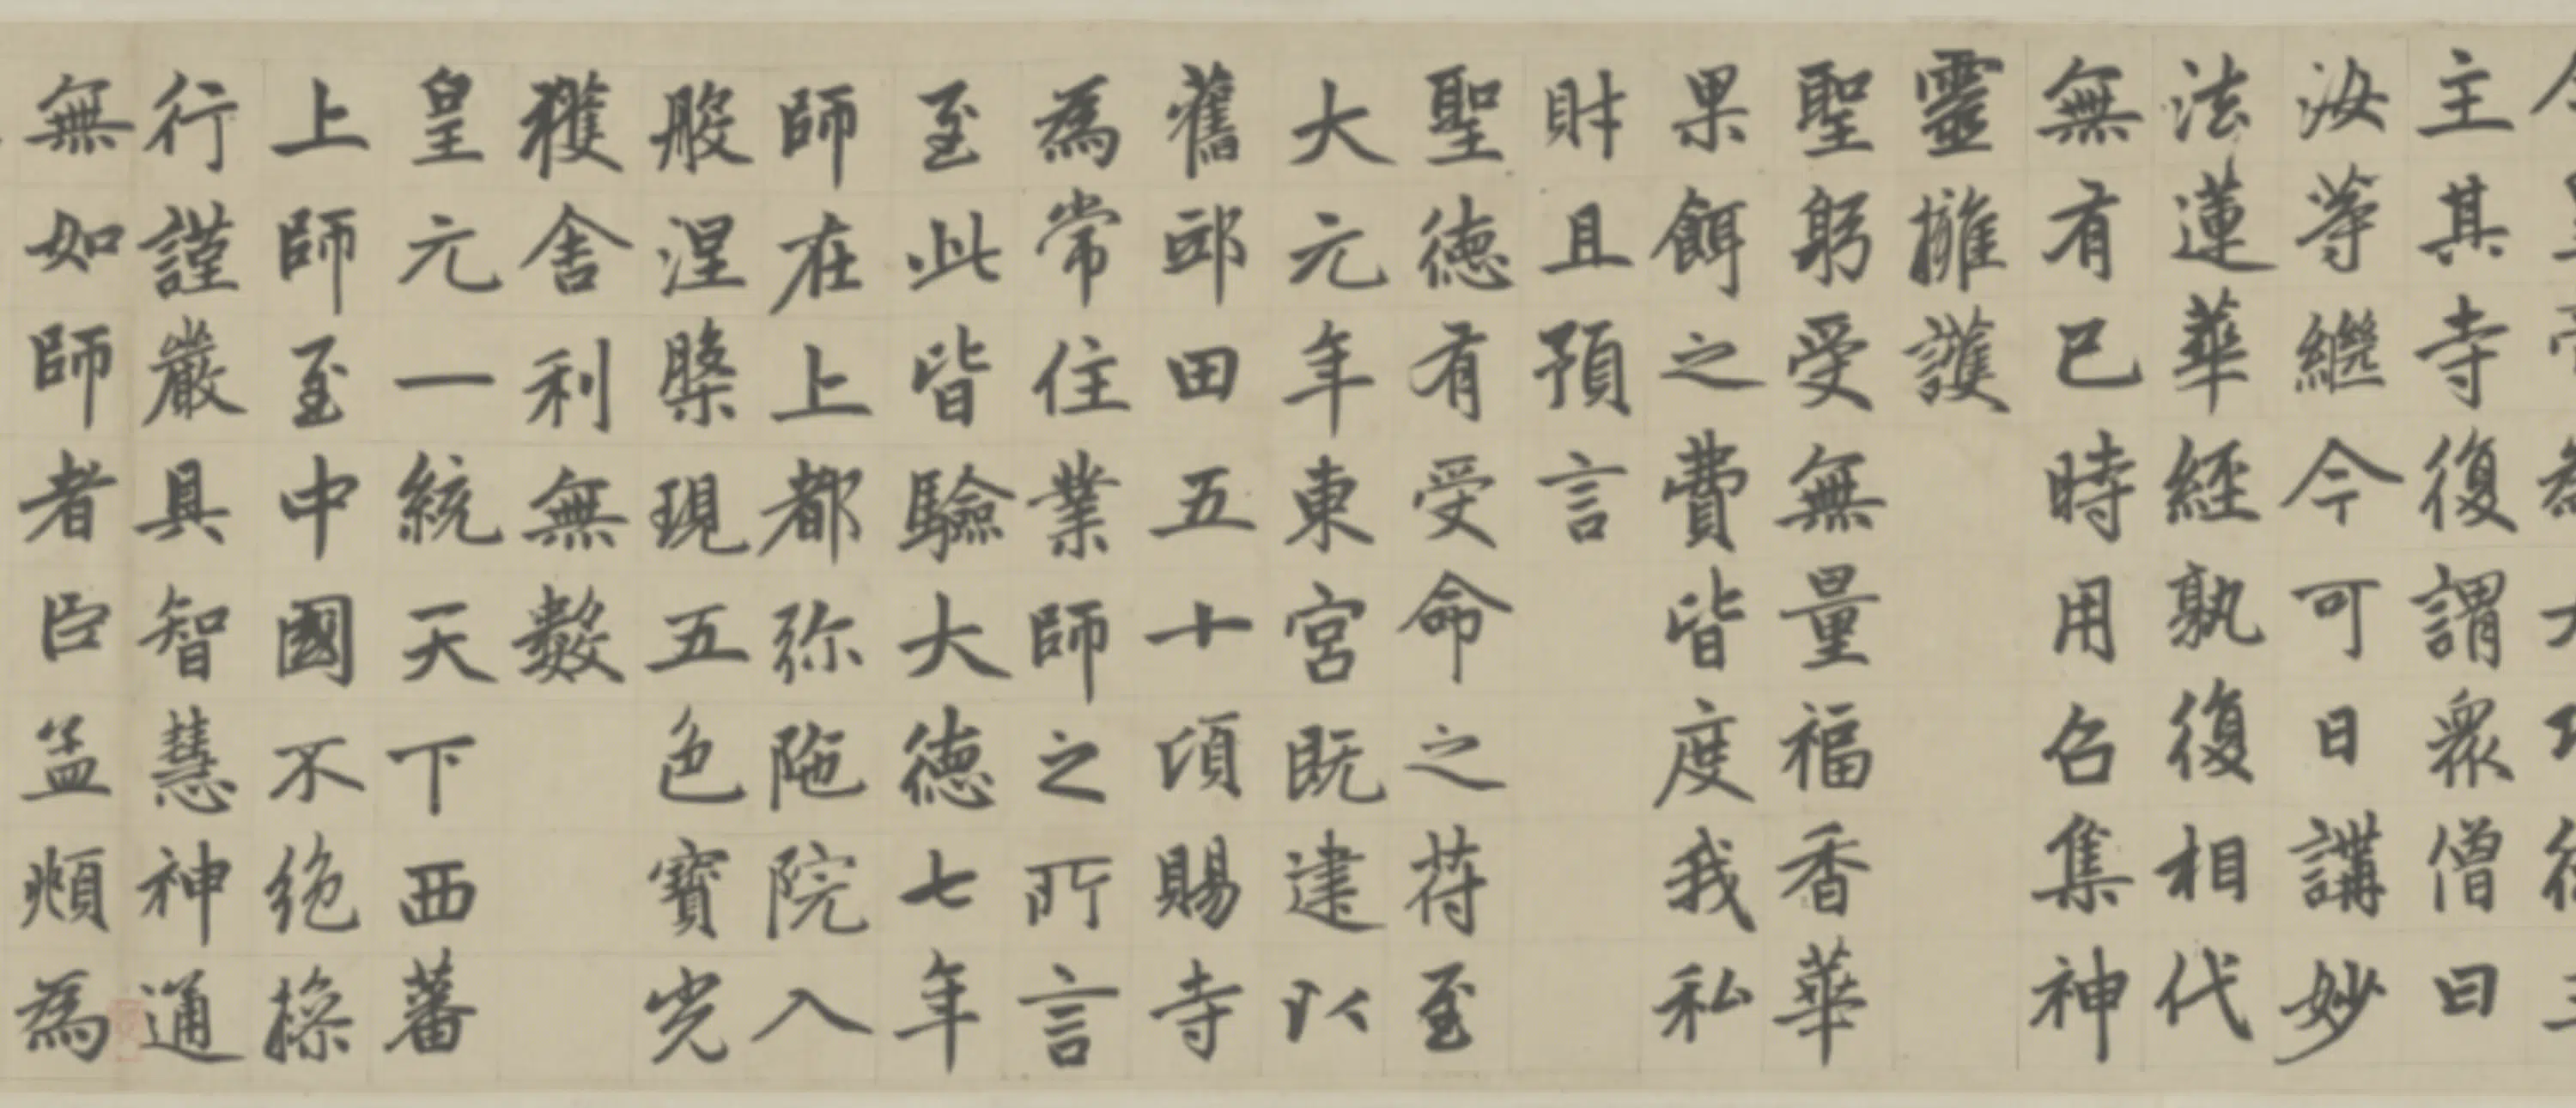 主其寺復謂衆僧曰
汝等繼今可日講妙
法蓮華經孰復相代
無有已時用召集神
靈擁護
聖躬受無量福香華
果餌之費皆度我私
財且預言
聖德有受命之符至
大元年東宮既建以
舊邸田五十頃賜寺
為常住業師之所言
至此皆驗大德七年
師在上都弥陁院入
般涅槃現五色寶光
獲舍利無數
皇元一統天下西蕃
上師至中國不絶操
行謹嚴具智慧神通
無如師者臣孟頫為